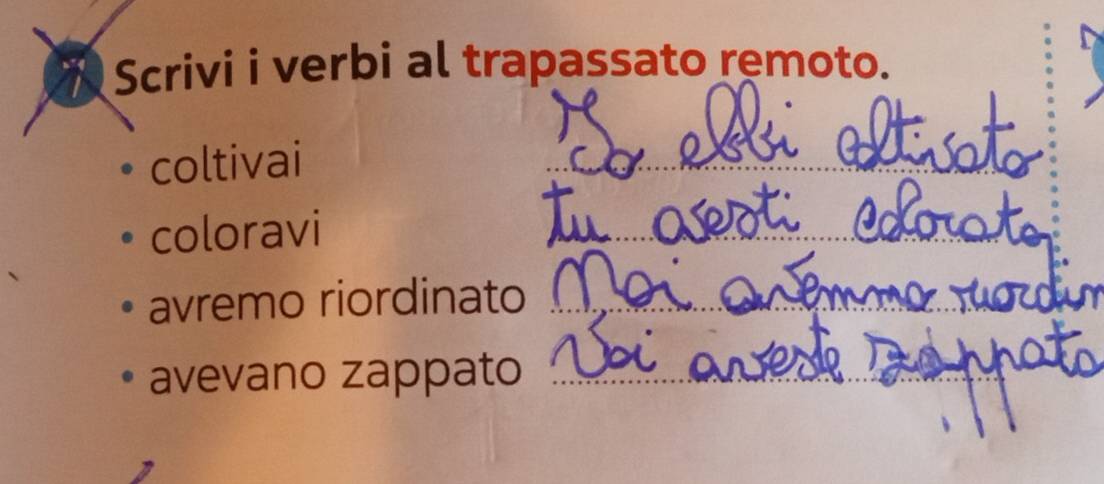 7 Scrivi i verbi al trapassato remoto.
• coltivai Io ebbi coltivato
• coloravi tu avesti colorato
• avremo riordinato Noi avemmo riordin
• avevano zappato Voi aveste zappato